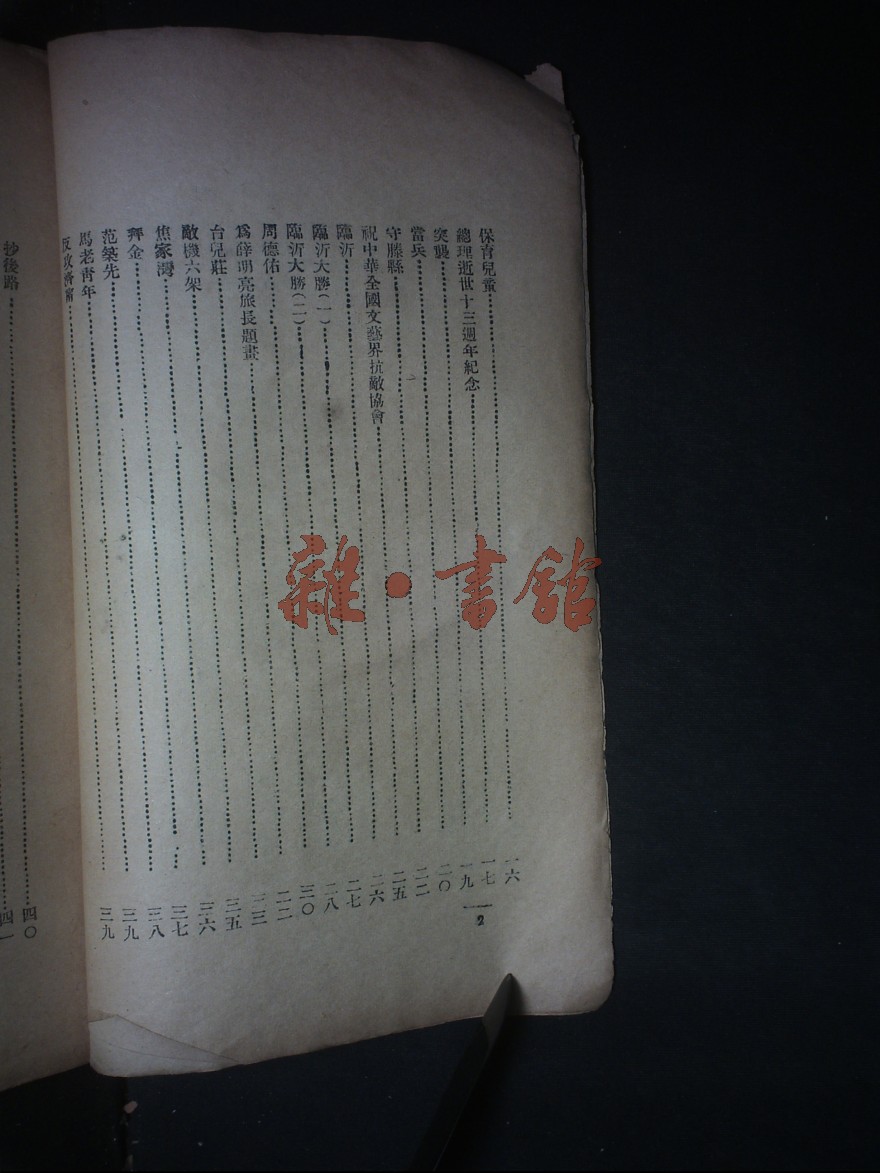 保育兒童 一六
總理逝世十三週年紀念 一七
突襲 一九
當兵 二〇
守滕縣 二二
祝中華全國文藝界抗敵協會 二五
臨沂 二六
臨沂大勝（一） 二七
臨沂大勝（二） 二八
周德佑 三〇
爲薛明亮旅長題畫 三二
台兒莊 三三
敵機六架 三五
焦家灣 三六
拜金 三七
范築先 三八
馬老靑年 三九
反攻濟南 三九
2
抄後路 四〇
四一
雜·書館